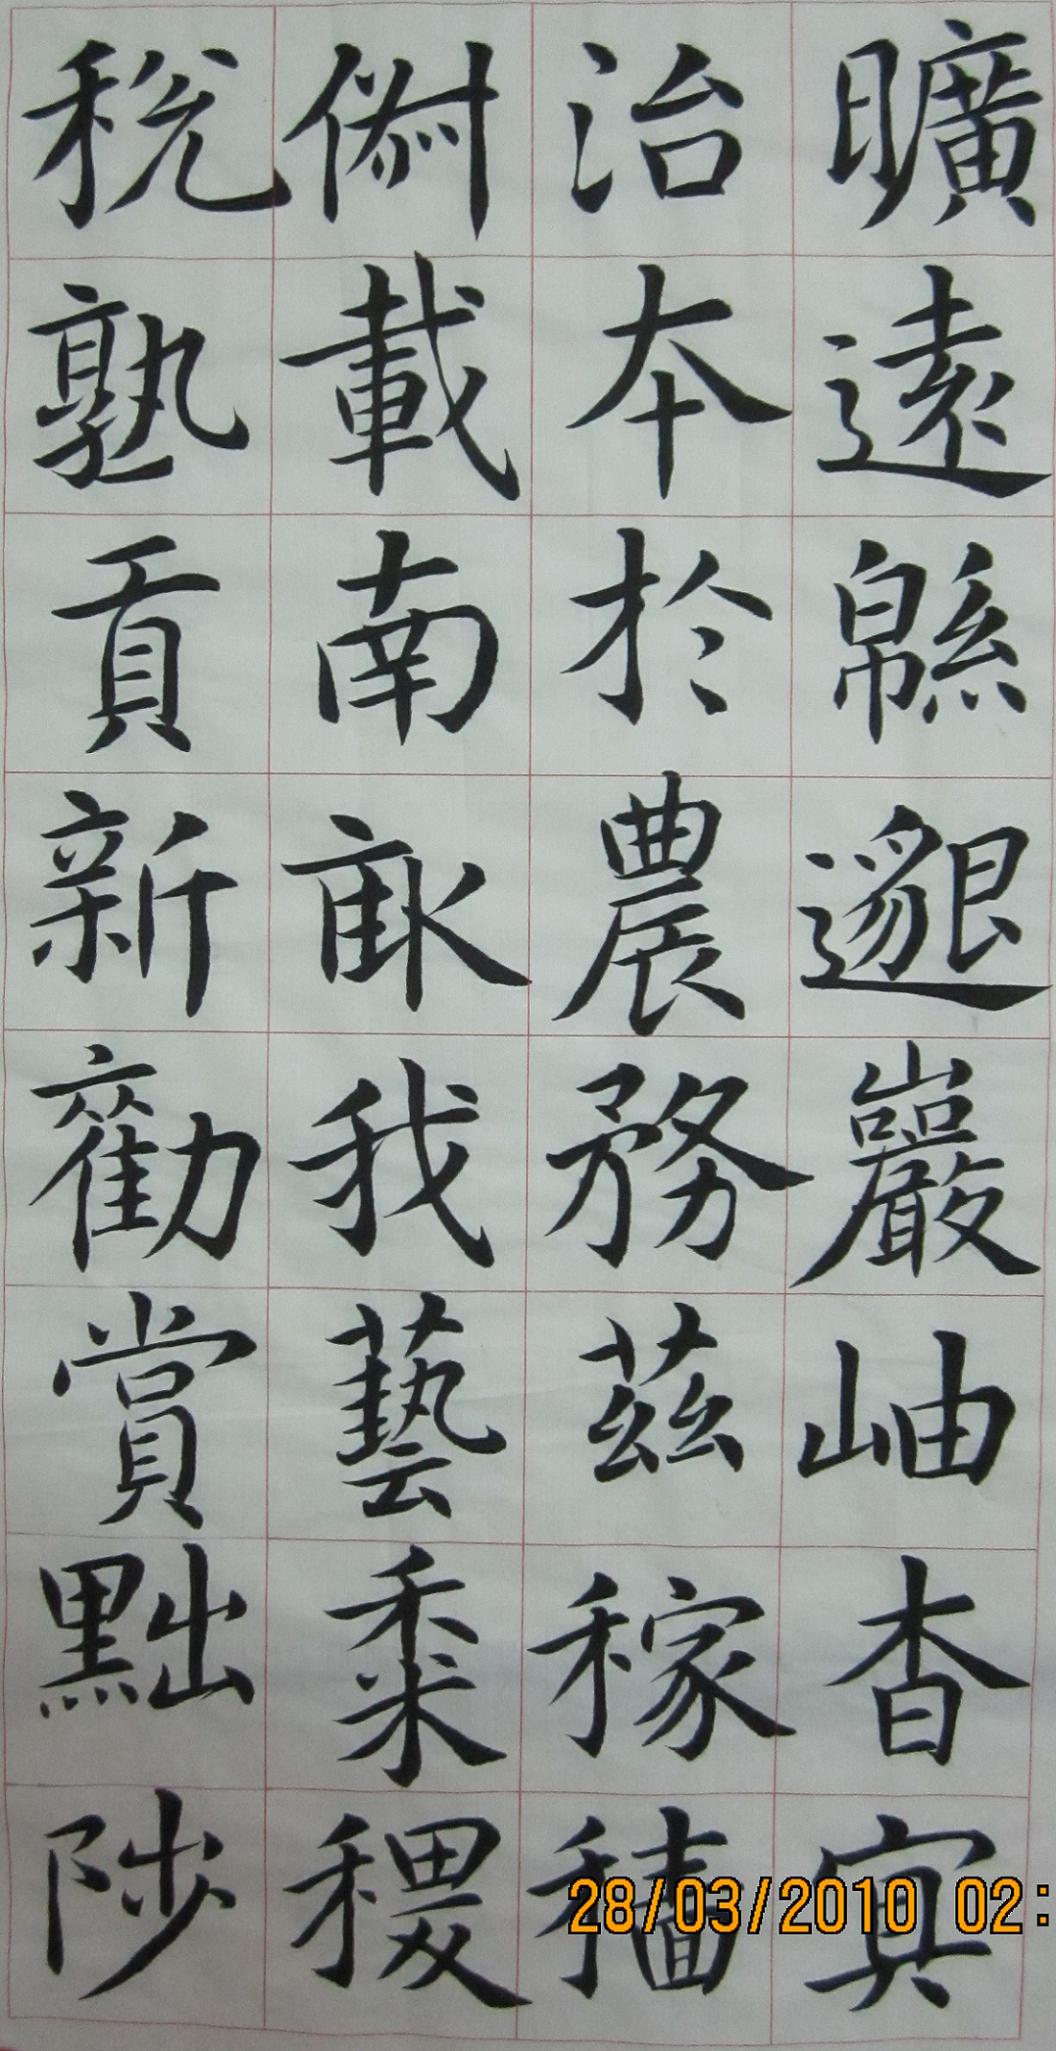 曠遠緜邈巖岫杳冥
治本於農務茲稼穡
俶載南畝我藝黍稷
稅熟貢新勸賞黜陟
28/03/2010 02: